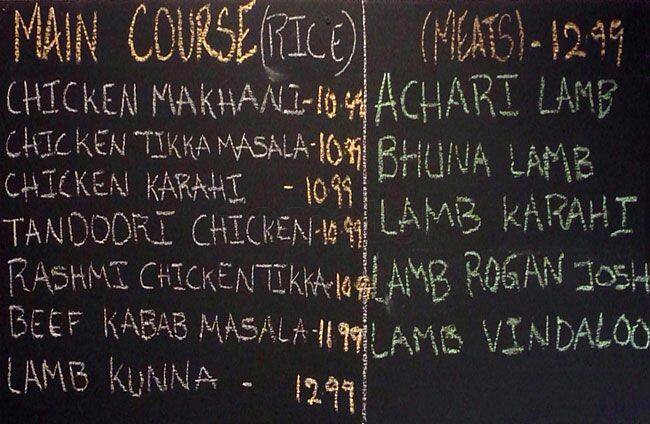 MAIN COURSE (RICE)
CHICKEN MAKHANI-10.99
CHICKEN TIKKA MASALA-10.99
CHICKEN KARAHI - 10 99
TANDOORI CHICKEN-10.99
RASHMI CHICKEN TIKKA-10.99
BEEF KABAB MASALA-11.99
LAMB KUNNA - 12 99
(MEATS)-12.99
ACHARI LAMB
BHUNA LAMB
LAMB KARAHI
LAMB ROGAN JOSH
LAMB VINDALOO